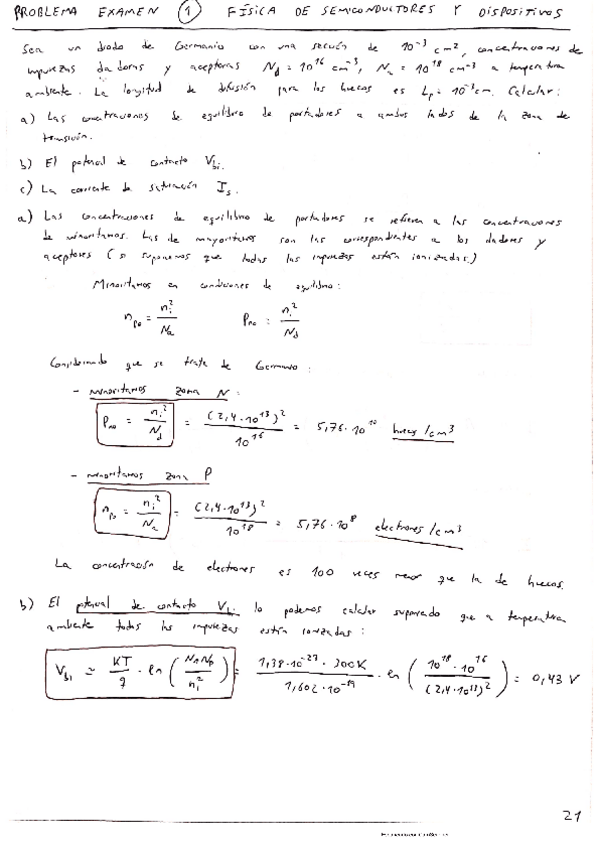 PROBLEMA EXAMEN ① FÍSICA DE SEMICONDUCTORES Y DISPOSITIVOS
Sea un diodo de Germanio con una sección de 10⁻³ cm², concentraciones de
impurezas dadoras y aceptoras Nd = 10¹⁶ cm⁻³, Na = 10¹⁸ cm⁻³ a temperatura
ambiente. La longitud de difusión para los huecos es Lp = 10⁻³ cm. Calcular:
a) Las concentraciones de equilibrio de portadores a ambos lados de la zona de
transición.
b) El potencial de contacto Vbi.
c) La corriente de saturación Is.
a) Las concentraciones de equilibrio de portadores se refieren a las concentraciones
de minoritarios. Las de mayoritarios son las correspondientes a los dadores y
aceptores (si suponemos que todas las impurezas están ionizadas.)
Minoritarios en condiciones de equilibrio:
npo = ni²/Na Pno = ni²/Nd
Considerando que se trata de Germanio:
- minoritarios zona N:
Pno = ni²/Nd = (2,4·10¹³)²/10¹⁶ = 5,76·10¹⁰ huecos/cm³
- minoritarios zona P
npo = ni²/Na = (2,4·10¹³)²/10¹⁸ = 5,76·10⁸ electrones/cm³
La concentración de electrones es 100 veces menor que la de huecos.
b) El potencial de contacto Vbi lo podemos calcular suponiendo que a temperatura
ambiente todas las impurezas están ionizadas:
Vbi ≃ KT/q · ln(
) = 1,38·10⁻²³ · 300K / 1,602·10⁻¹⁹ · ln(10¹⁸·10¹⁶/(2,4·10¹³)²) = 0,43 V
21